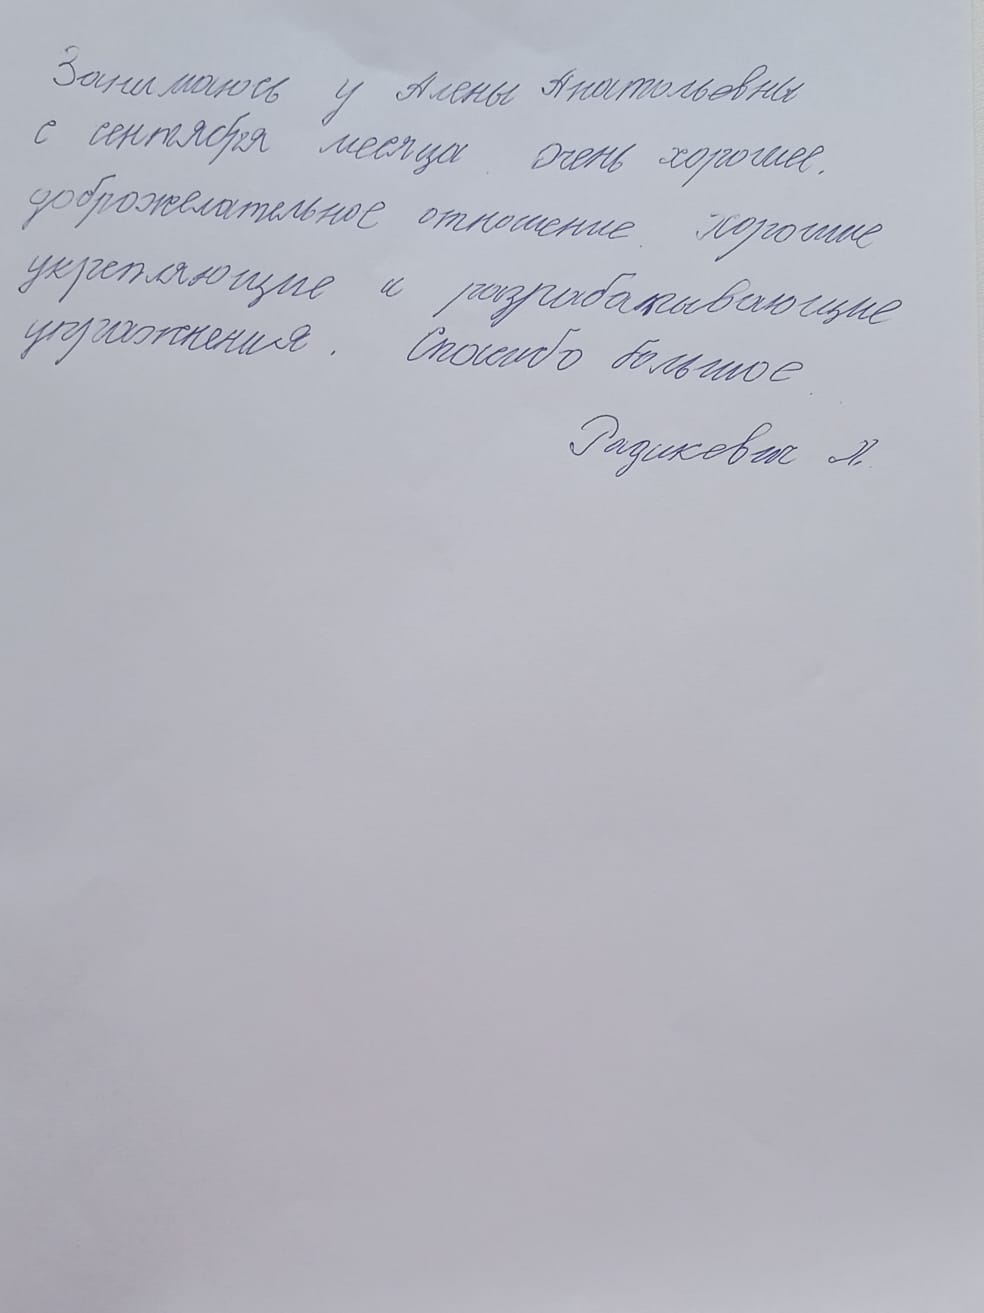 Занимаюсь у Алены Анатольевны
с сентября месяца. Очень хорошее,
доброжелательное отношение. Хорошие
укрепляющие и разрабакывающие
упражнения. Спасибо большое.
Радикевич Л.